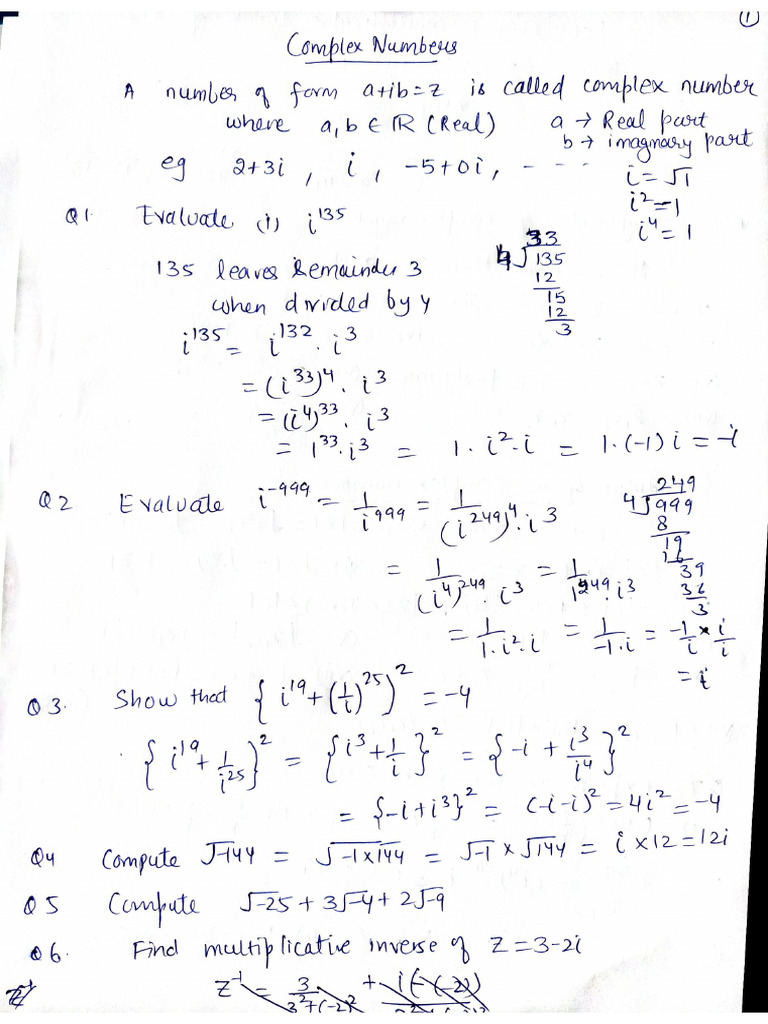 ①
Complex Numbers
A number of form a+ib=z is called complex number
where a, b ∈ ℝ (Real) a → Real part
b → imagnary part
eg 2+3i , i , -5+0i, - - - -
i = √1
i² = -1
i⁴ = 1
Q1. Evaluate (i) i¹³⁵
135 leaves remainder 3
when divided by 4
33
4√135
12
15
12
3
i¹³⁵ = i¹³² · i³
= (i³³)⁴ · i³
= (i⁴)³³ · i³
= 1³³ · i³ = 1 · i² · i = 1 · (-1) i = -i
Q2 Evaluate i⁻⁹⁹⁹ = 1/i⁹⁹⁹ = 1/(i²⁴⁹)⁴ · i³
= 1/(i⁴)²⁴⁹ · i³ = 1/1²⁴⁹ · i³
= 1/1 · i² · i = 1/-1 · i = -1/i × i/i
= i
249
4√999
8
19
16
39
36
3
Q3. Show that { i¹⁹ + (1/i)²⁵ }² = -4
{ i¹⁹ + 1/i²⁵ }² = { i³ + 1/i }² = { -i + i³/i⁴ }²
= {-i + i³}² = (-i-i)² = 4i² = -4
Q4 Compute √-144 = √-1×144 = √-1 × √144 = i × 12 = 12i
Q5 Compute √-25 + 3√-4 + 2√-9
Q6. Find multiplicative inverse of z = 3-2i